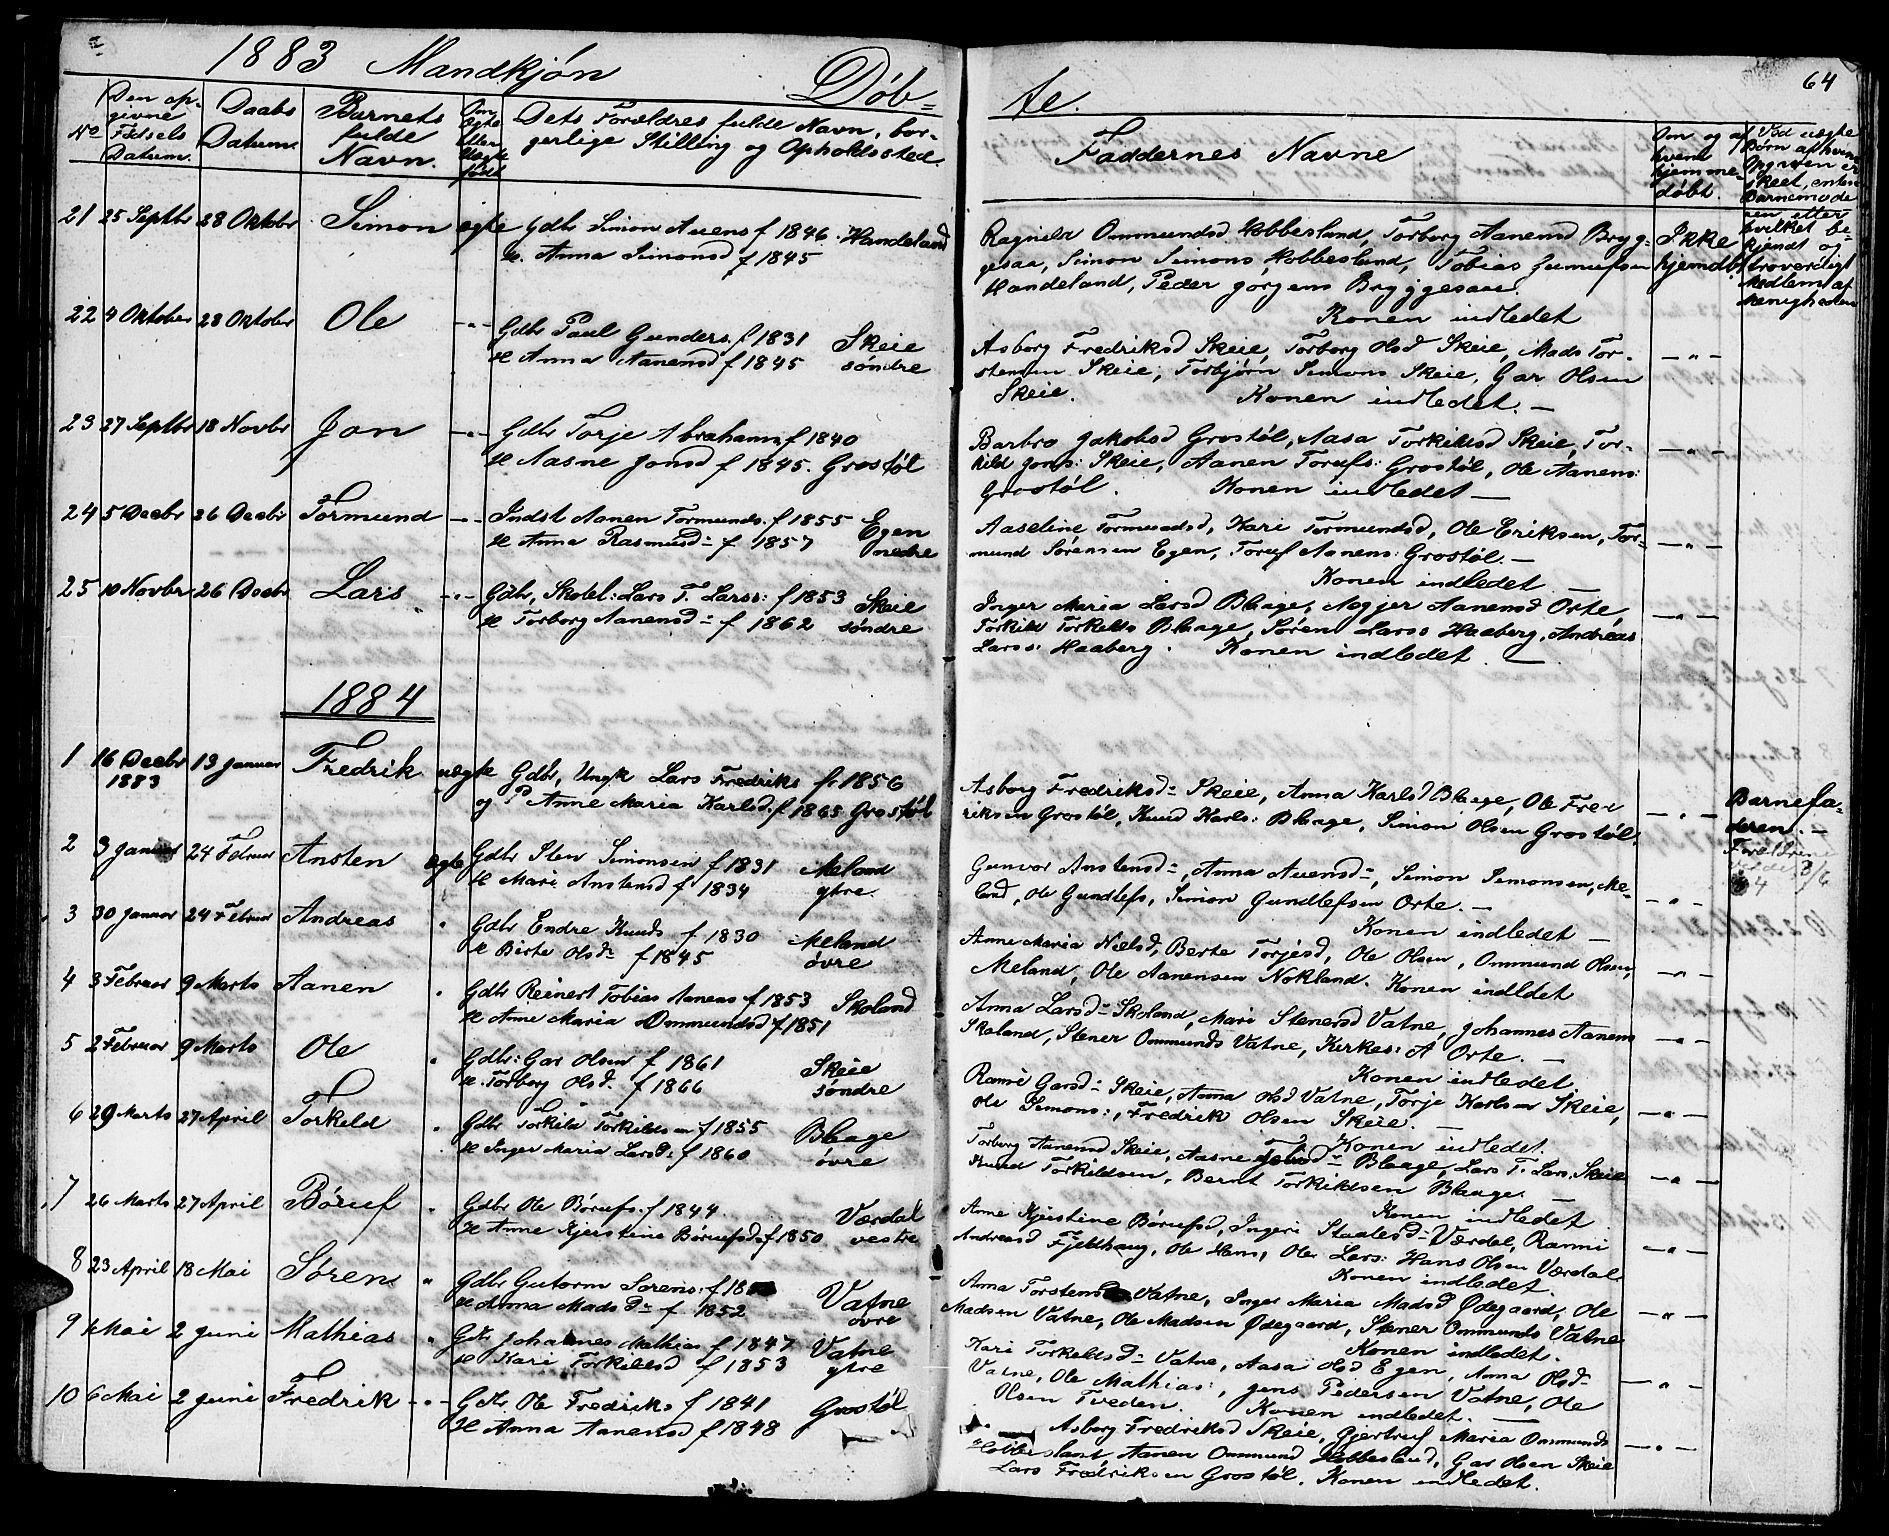 1883 Mandkjøn Døb=
te.
64
No
Den op-
givne
Fødsels
Datum.
Daabs
Datum.
Barnets
fulde
Navn.
Om
ægte
eller
Uægte
født
Dets Forældres fulde Navn, bor-
gerlige Stilling og Opholdssted
Faddernes Navne
Om og af
hvem
hjemme-
døbt.
Ved uægte
Børn af hvem
Opgaven er
skeet, enten
Barnemode
ren eller
hvilket be-
kjendt og
troværdigt
Medlem af
Menigheden
21 25 Septbr 28 Oktobr Simon ægte Gdbr Simon Auens f 1846. Handeland
H. Anna Simonsd f 1845
Ragnild Ommundsd Hobbesland, Torborg Aanensd Bryg-
gesaa, Simon Simons Hobbesland, Tobias Gunufsen
Handeland, Peder Jørgens Bryggesaa.
Konen indledet
Ikke
hjemdbt
22 4 Oktober 28 Oktober Ole -"- Gdbr Paul Gunders. f 1831 Skeie
H Anna Aanensd f 1845 søndre
Asborg Fredriksd Skeie, Torborg Olsd Skeie, Mads Tor-
stensen Skeie, Torbjørn Simons Skeie, Gar Olsen
Skeie. Konen indledet. —
-"-
23 27 Septbr 18 Novbr Jon -"- Gdbr Torje Abrahams f 1840
H Aasne Jonsd f 1845. Grostøl
Barbro Jakobsd Grostøl, Aasa Torkildsd Skeie, Tor-
kild Jons: Skeie, Aanen Torufs: Grostøl, Ole Aanens:
Grostøl. Konen indledet —
-"-
24 5 Decbr 26 Decbr Tormund -"- Indst Aanen Tormunds. f 1855 Egen
H Anna Rasmusd- f 1857 nedre
Aaseline Tormundsd, Kari Tormundsd, Ole Eriksen, Tor-
mund Sørensen Egen, Toruf Aanens: Grostøl. —
Konen indledet —
-"-
25 10 Novbr 26 Decbr Lars -"- Gdbr, Skolel: Lars T. Larss: f 1853 Skeie
H Torborg Aanensd- f 1862 søndre
Inger Maria Larsd Blaage, Aagjer Aanensd Orte,
Torkild Torkilds Blaage, Søren Larss Haaberg, Andreas
Larss: Haaberg. Konen indledet. —
-"-
1884
1 16 Decbr 13 Januar Fredrik uægte Gdbr, Ungk Lars Fredriks f. 1856
1883
og P Anne Maria Karlsd. f 1865 Grostøl
Asborg Fredriksd- Skeie, Anna Karlsd Blaage, Ole Fred
riksen Grostøl, Knud Karls: Blaage, Simon Olsen Grostøl.
-"-
Barnefa-
deren. —
2 3 Januar 24 Februar Ansten ægte Gdbr Sten Simonsen f 1831 Meland
H Mari Anstensd f 1834 ytre.
Gunvor Anstensd-, Anna Auensd-, Simon Simonsen, Me-
land, Ole Gundlefs, Simon Gundlefsen Orte. —
Konen indledet —
-"-
3 30 Januar 24 Februar Andreas " Gdbr Endre Knuds f 1830 Meland
H Birte Olsd- f 1845 øvre
Anne Maria Nielsd, Berte Torjesd, Ole Olsen, Ommund Olsen,
Meland, Ole Aanensen Nokland. Konen indldet
-"-
4 3 Februar 9 Marts Aanen " Gdbr Reinert Tobias Aanens f 1853 Skoland
H Anne Maria Ommundsd f 1851
Anna Larsd- Skoland, Mari Stenersd Vatne, Johannes Aanens
Skoland, Stener Ommunds Vatne, Kirkes: A Orte. —
Konen indledet.
-"-
5 2 Februar 9 Marts Ole " Gdbr: Gar Olsen f 1861 Skeie
H. Torborg Olsd. f 1866 søndre
Rannei Garsd- Skeie, Anna Olsd Vatne, Torje Karlsen Skeie,
Ole Simons:, Fredrik Olsen Skeie. —
Konen indledet.
-"-
6 29 Marts 27 April Torkeld " Gdbr Torkild Torkildsen f 1855 Blaage
H Inger Maria Larsd. f 1860 øvre
Torborg Aanensd Skeie, Aasne Blaage, Lars T. Lars. Skeie
Knud Torkildsen, Bernt Torkildsen Blaage. —
Konen indledet
-"-
7 26 Marts 27 April Børuf " Gdbr Ole Børufs. f 1844 Værdal
H Anne Kjerstine Børufsd. f 1850 vestre
Anne Kjerstine Børufsd, Ingeri Staalesd- Værdal, Rannei
Andreasd Fjeldhaug, Ole Hans, Ole Lars: Hans Olsen Værdal
Konen indledet.
-"-
8 23 April 18 Mai Søren " Gdbr Gutorm Sørens: f 18 Vatne
H Anna Mads D- f 1852 øvre
Anna Torstensd Vatne, Inger Maria Madsd Ødegaard, Ole
Madsen Vatne, Ole Madsen Ødegaard, Stener Ommunds Vatne
Konen indledet.
-"-
9 Mai 2 Juni Mathias " Gdbr Johannes Mathias f 1847 Vatne
H Kari Torkildsd f 1853 ytre
Kari Torkildsd- Vatne, Aasa Olsd Egen, Anna Olsd-
Vatne, Ole Mathias:, Jens Pedersen Vatne, Ole
Olsen Tveden. Konen indledet. —
-"-
10 6 Mai 2 Juni Fredrik -"- Gdbr Ole Fredriks f 1841 Grostøl
H Anna Aanensd f 1848
Asborg Fredriksd Skeie, Gjertruf Maria Ommunds
Hobbesland, Aanen Ommund Hobbesland, Gar Olsen Skeie
Lars Fredriksen Grostøl. Konen indledet.
-"-